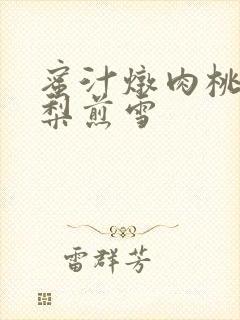 蜜汁燉肉桃
梨煎雪
雷群芳